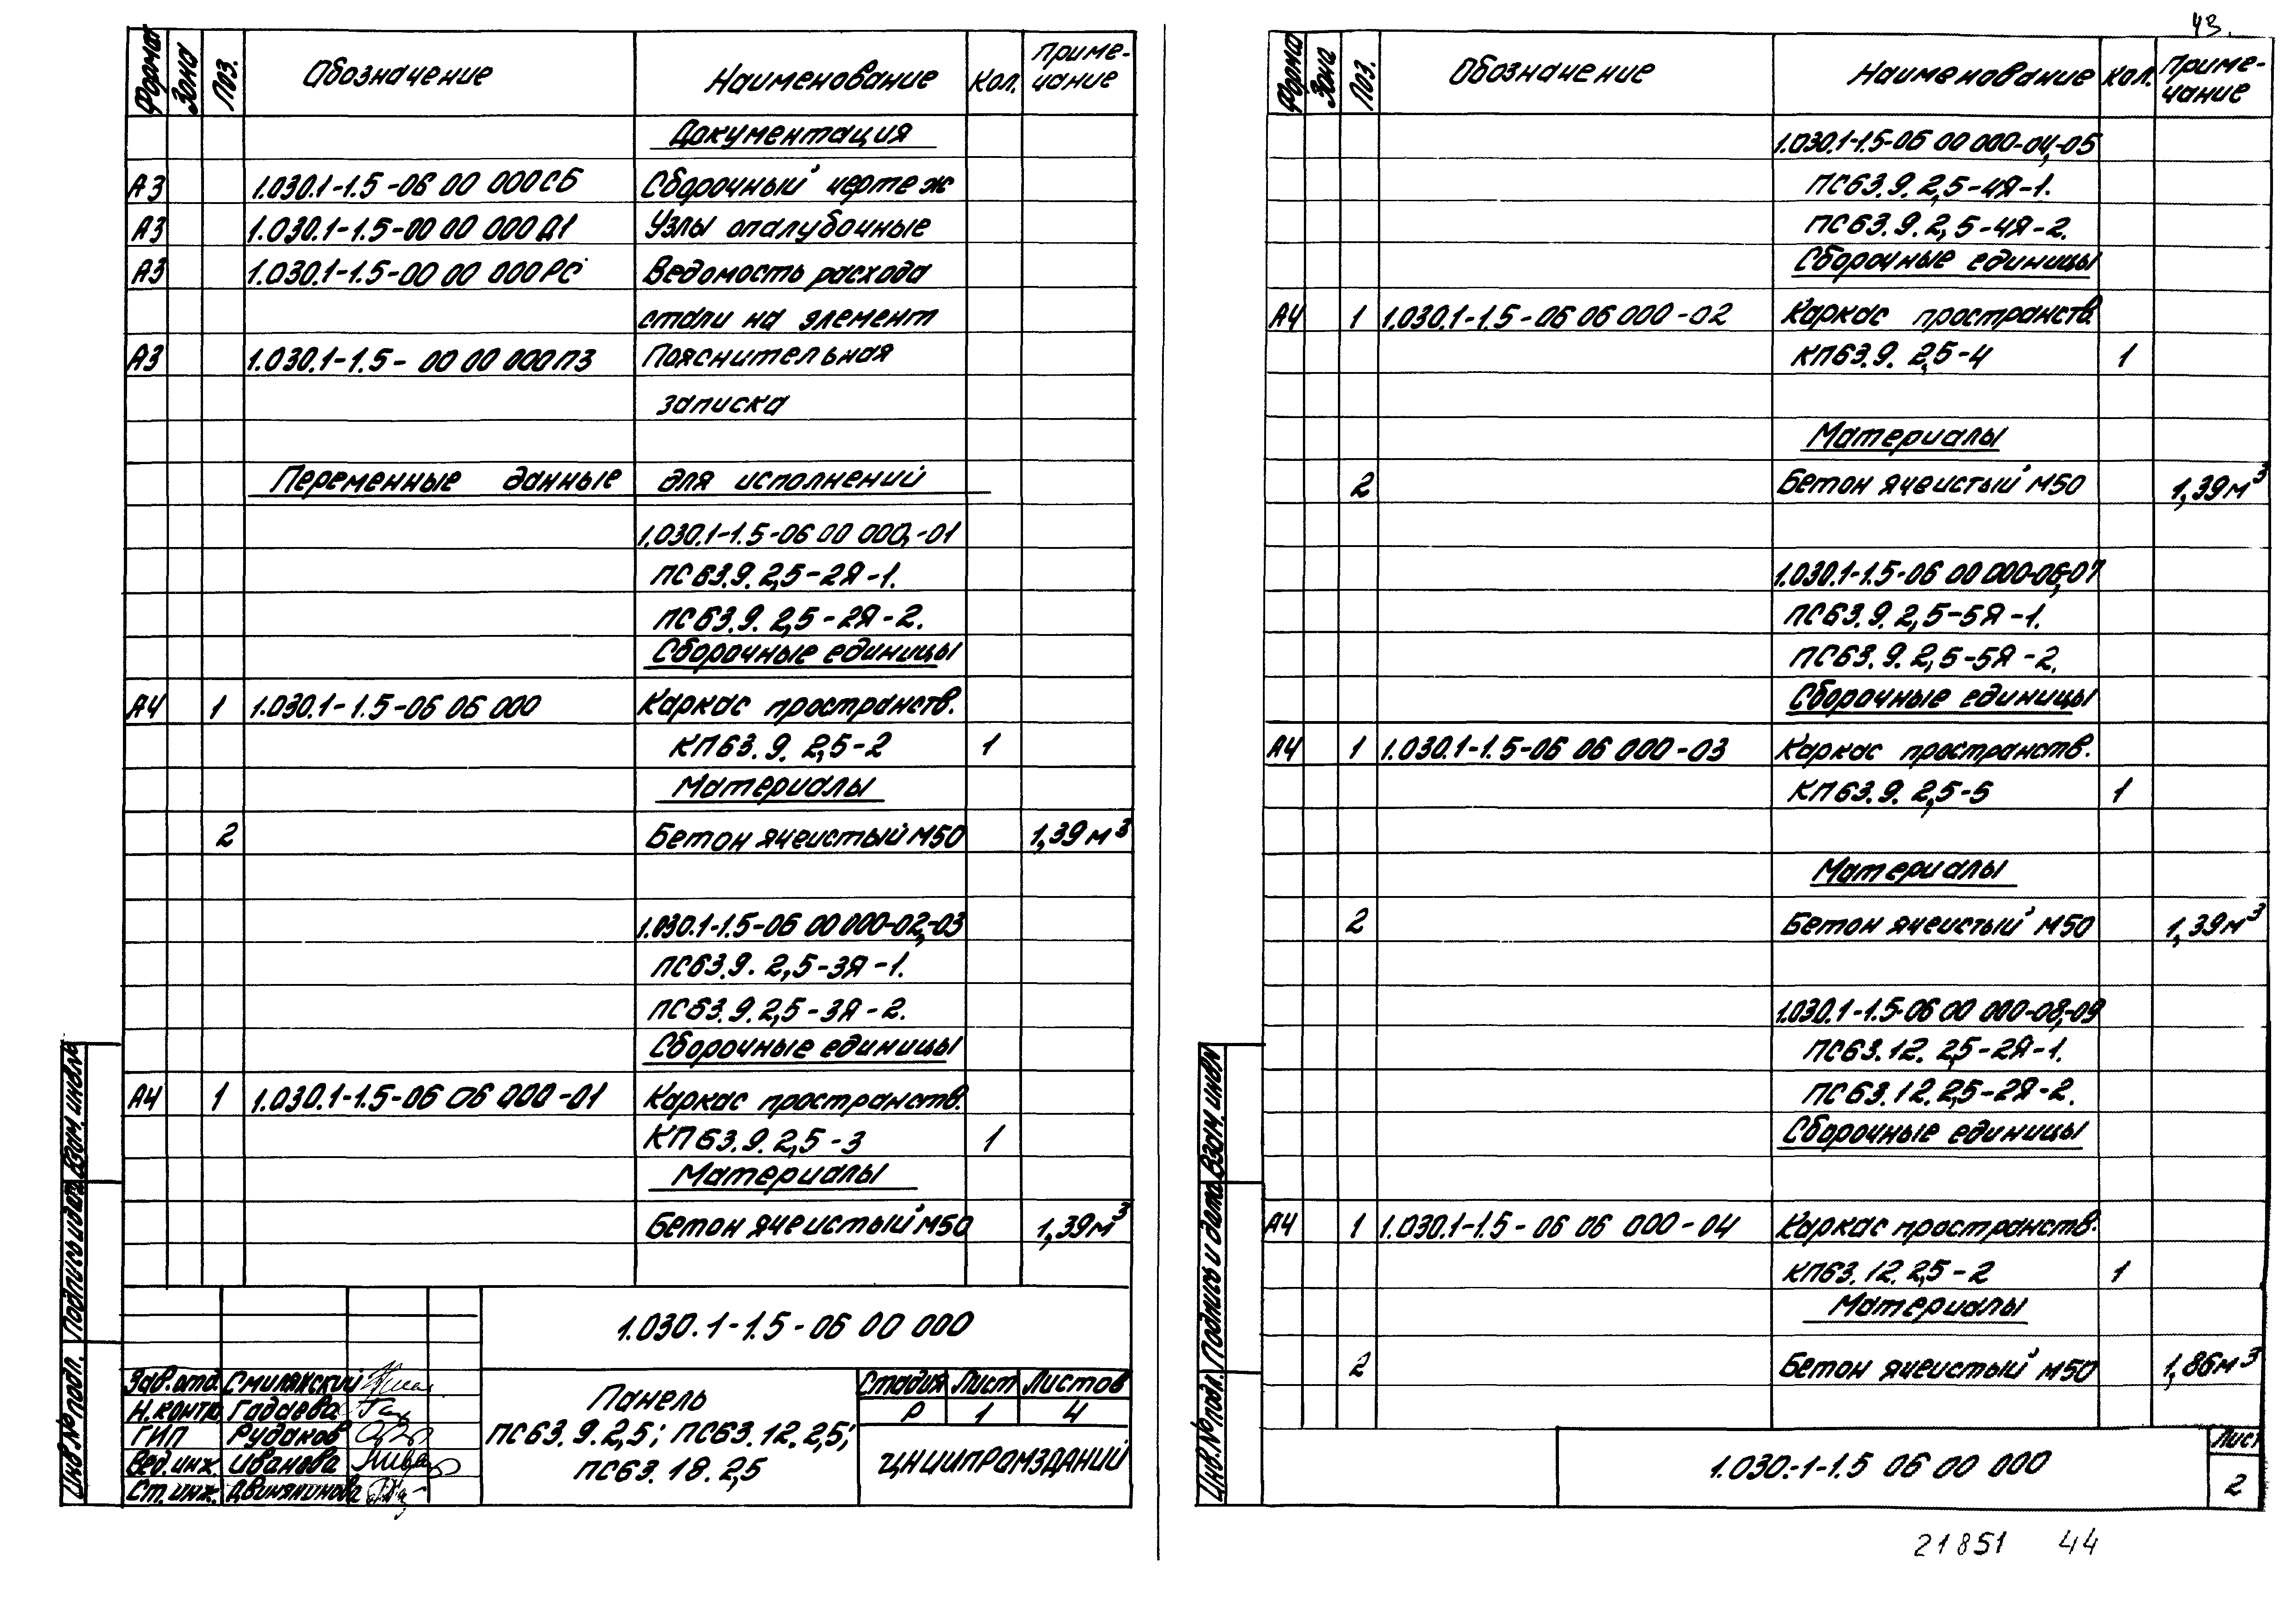 43.
Формат Зона Поз. Обозначение Наименование Кол. Приме-
чание
Документация
А3 1.030.1-1.5-06 00 000СБ Сборочный чертеж
А3 1.030.1-1.5-00 00 000Д1 Узлы опалубочные
А3 1.030.1-1.5-00 00 000РС Ведомость расхода
стали на элемент
А3 1.030.1-1.5-00 00 000ПЗ Пояснительная
записка
Переменные данные для исполнений
1.030.1-1.5-06 00 000,-01
ПС63.9.2,5-2Я-1.
ПС63.9.2,5-2Я-2.
Сборочные единицы
А4 1 1.030.1-1.5-06 06 000 Каркас пространств.
КП63.9.2,5-2 1
Материалы
2 Бетон ячеистый М50 1,39м³
1.030.1-1.5-06 00 000-02,-03
ПС63.9.2,5-3Я-1.
ПС63.9.2,5-3Я-2.
Сборочные единицы
А4 1 1.030.1-1.5-06 06 000-01 Каркас пространств.
КП63.9.2,5-3 1
Материалы
Бетон ячеистый М50 1,39м³
1.030.1-1.5-06 00 000
Зав.отд. Смилянский
Н.контр Гадаева
ГИП Рудаков
Вед.инж. Иванова
Ст.инж. Двинянинова
Панель
ПС63.9.2,5; ПС63.12.2,5;
ПС63.18.2,5
Стадия Лист Листов
Р 1 4
ЦНИИПРОМЗДАНИЙ
Инв.№ подл. Подпись и дата Взам.инв.№
Формат Зона Поз. Обозначение Наименование Кол. Приме-
чание
1.030.1-1.5-06 00 000-04,-05
ПС63.9.2,5-4Я-1.
ПС63.9.2,5-4Я-2.
Сборочные единицы
А4 1 1.030.1-1.5-06 06 000-02 Каркас пространств.
КП63.9.2,5-4 1
Материалы
2 Бетон ячеистый М50 1,39м³
1.030.1-1.5-06 00 000-06,-07
ПС63.9.2,5-5Я-1.
ПС63.9.2,5-5Я-2.
Сборочные единицы
А4 1 1.030.1-1.5-06 06 000-03 Каркас пространств.
КП63.9.2,5-5 1
Материалы
2 Бетон ячеистый М50 1,39м³
1.030.1-1.5-06 00 000-08,-09
ПС63.12.2,5-2Я-1.
ПС63.12.2,5-2Я-2.
Сборочные единицы
А4 1 1.030.1-1.5-06 06 000-04 Каркас пространств.
КП63.12.2,5-2 1
Материалы
2 Бетон ячеистый М50 1,86м³
1.030.-1-1.5 06 00 000
Лист
2
Инв.№ подл. Подпись и дата Взам.инв.№
21851 44